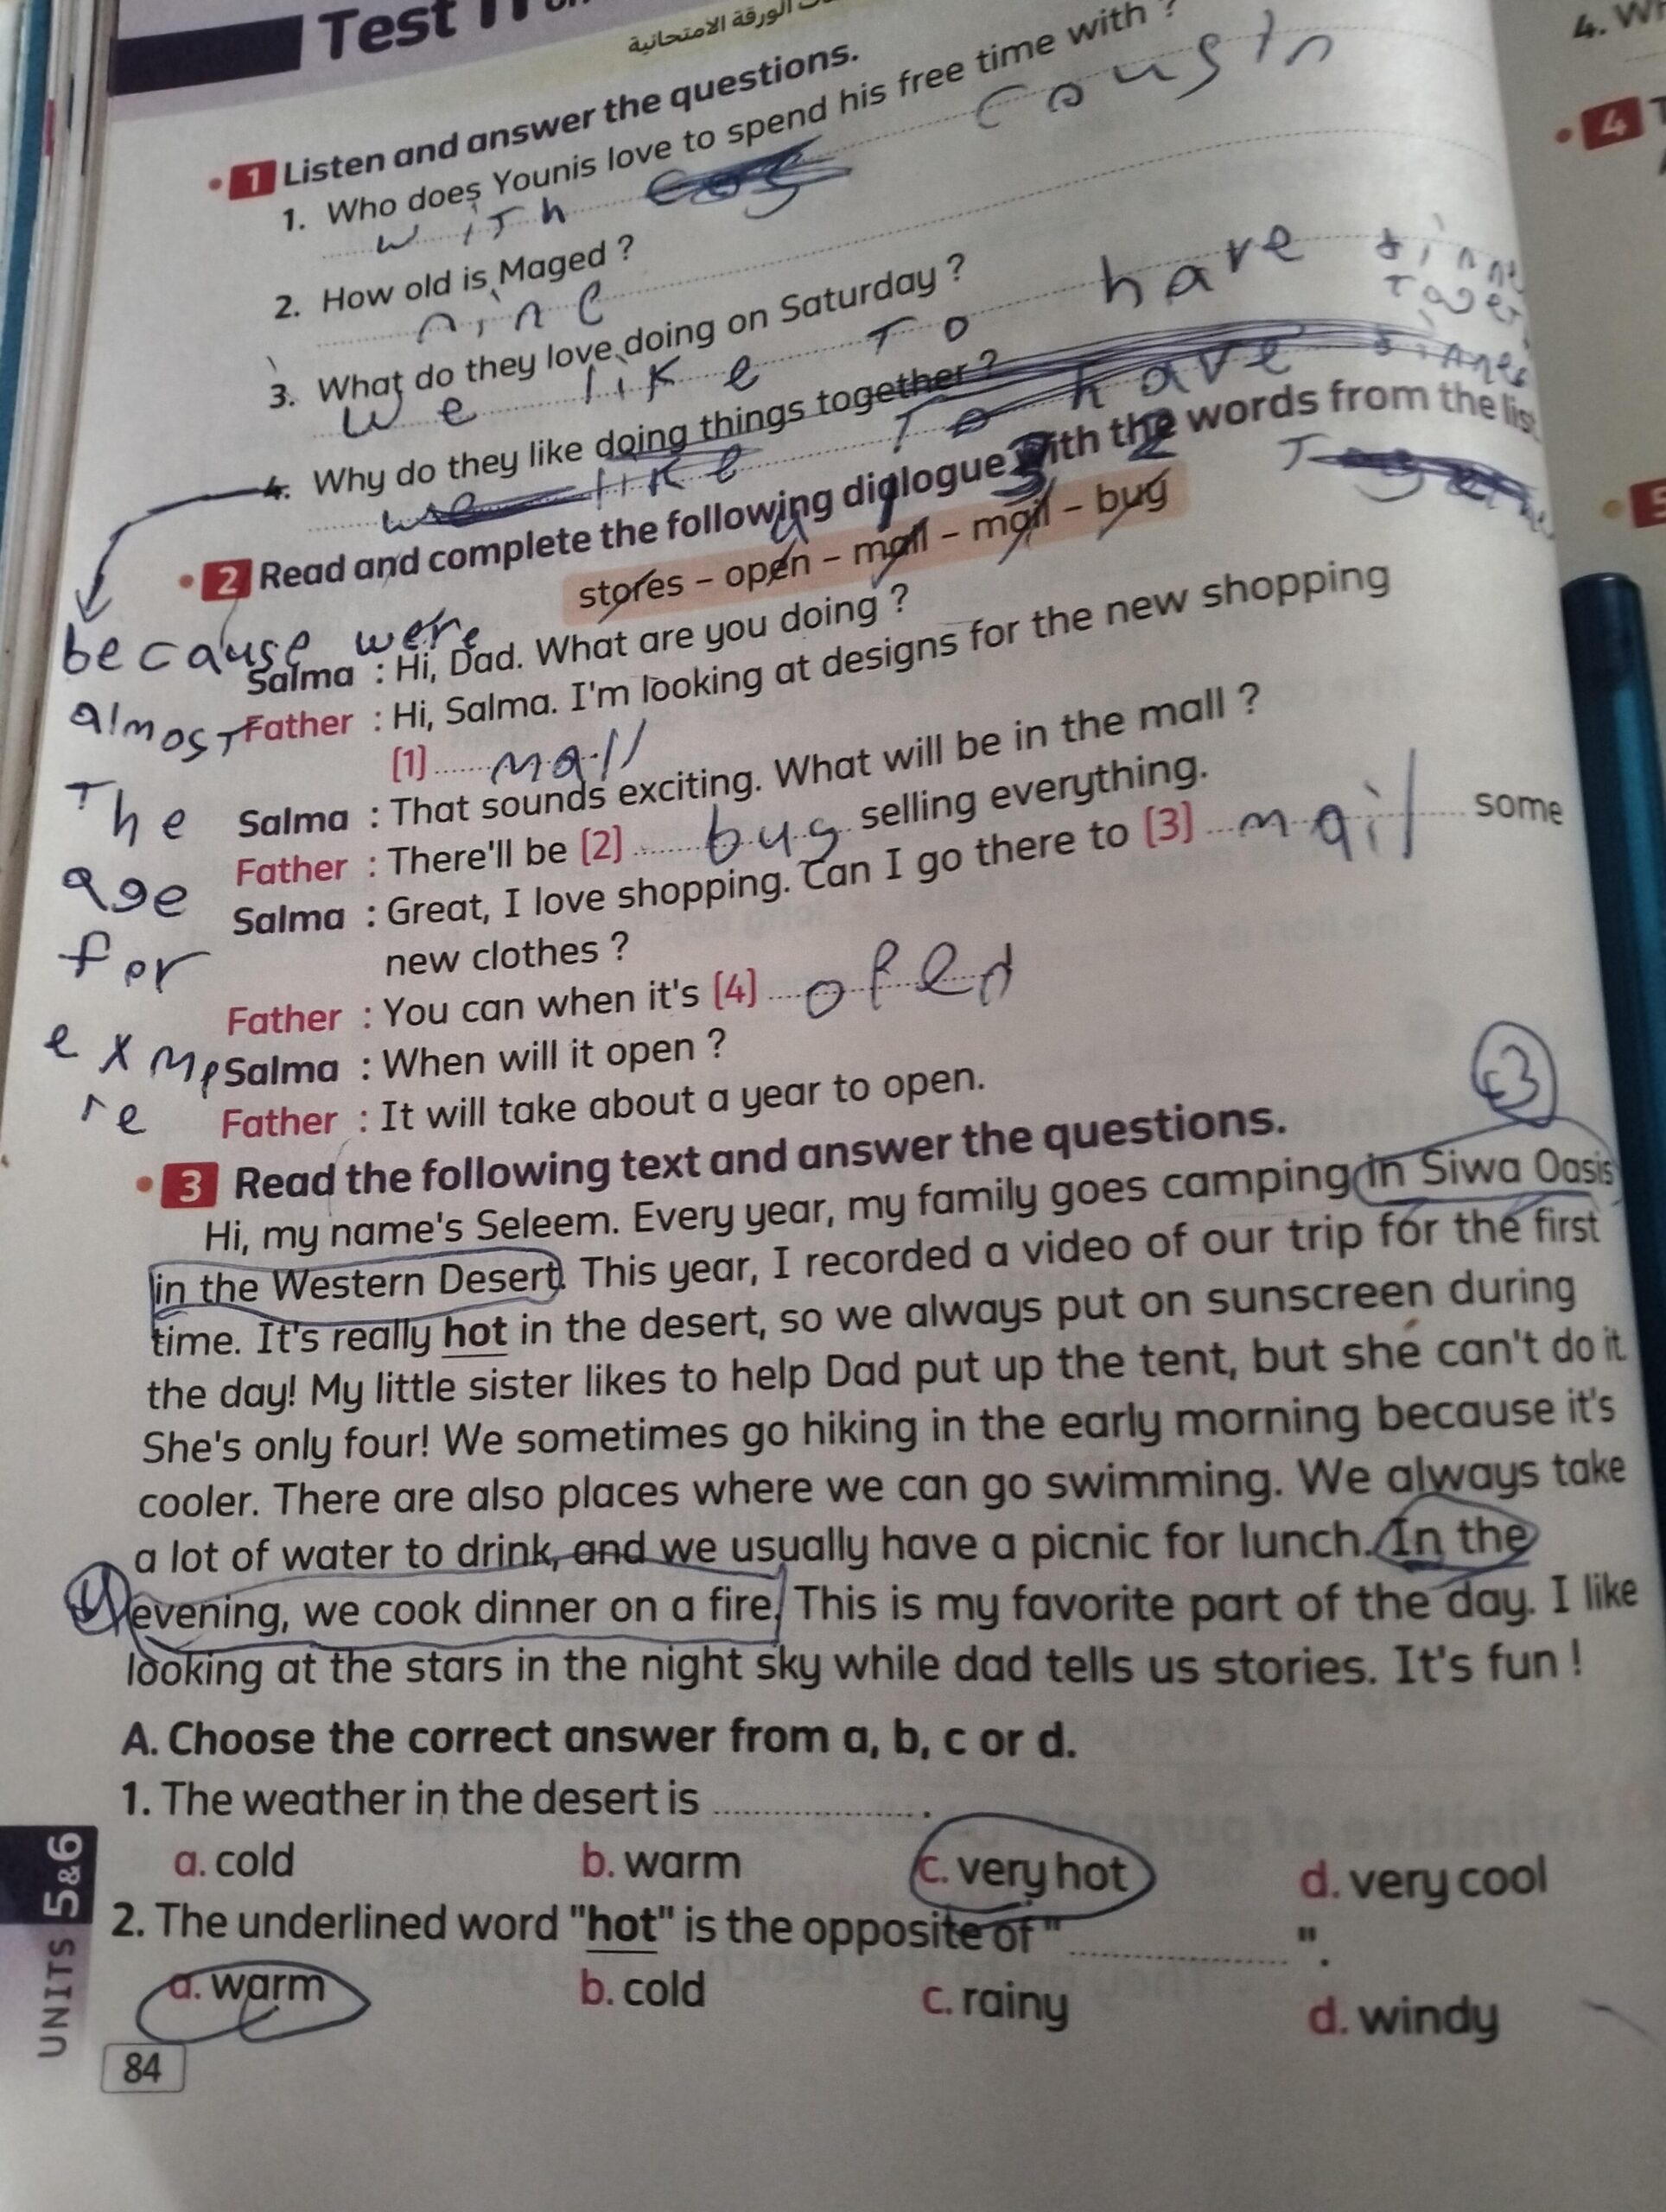 Test 11
الورقة الامتحانية
1 Listen and answer the questions.
1. Who does Younis love to spend his free time with ?
with cousin
2. How old is Maged ?
nine
3. What do they love doing on Saturday ?
we like to have
4. Why do they like doing things together ?
we like To have
2 Read and complete the following dialogue with the words from the list
stores – open – mall – mail – bug
because were
almost
The
age
for
exmp
re
Salma : Hi, Dad. What are you doing ?
Father : Hi, Salma. I'm looking at designs for the new shopping
(1) mall
Salma : That sounds exciting. What will be in the mall ?
Father : There'll be (2) bug selling everything.
Salma : Great, I love shopping. Can I go there to (3) mail some
new clothes ?
Father : You can when it's (4) ofen
Salma : When will it open ?
Father : It will take about a year to open.
3 Read the following text and answer the questions.
Hi, my name's Seleem. Every year, my family goes camping in Siwa Oasis
in the Western Desert. This year, I recorded a video of our trip for the first
time. It's really hot in the desert, so we always put on sunscreen during
the day! My little sister likes to help Dad put up the tent, but she can't do it.
She's only four! We sometimes go hiking in the early morning because it's
cooler. There are also places where we can go swimming. We always take
a lot of water to drink, and we usually have a picnic for lunch. In the
evening, we cook dinner on a fire. This is my favorite part of the day. I like
looking at the stars in the night sky while dad tells us stories. It's fun !
A. Choose the correct answer from a, b, c or d.
1. The weather in the desert is .................... .
a. cold b. warm c. very hot d. very cool
2. The underlined word "hot" is the opposite of "....................".
a. warm b. cold c. rainy d. windy
UNITS 5&6
84
4
5